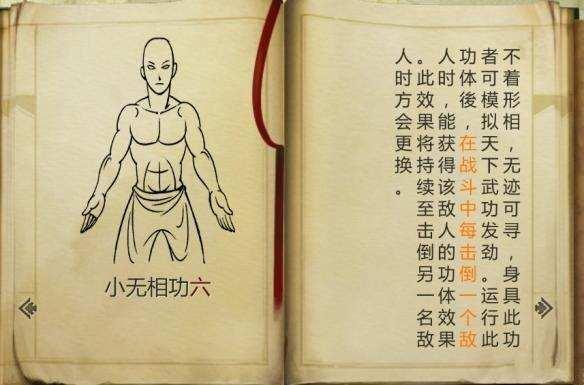 不着形相，无迹可寻，身具此功
者可模拟天下武功发劲。运行此
功体後，在战斗中每击倒一个敌
人时，能获得该敌人的功体效果
。此效果将持续至击倒另一名敌
人时方会更换。
小无相功六